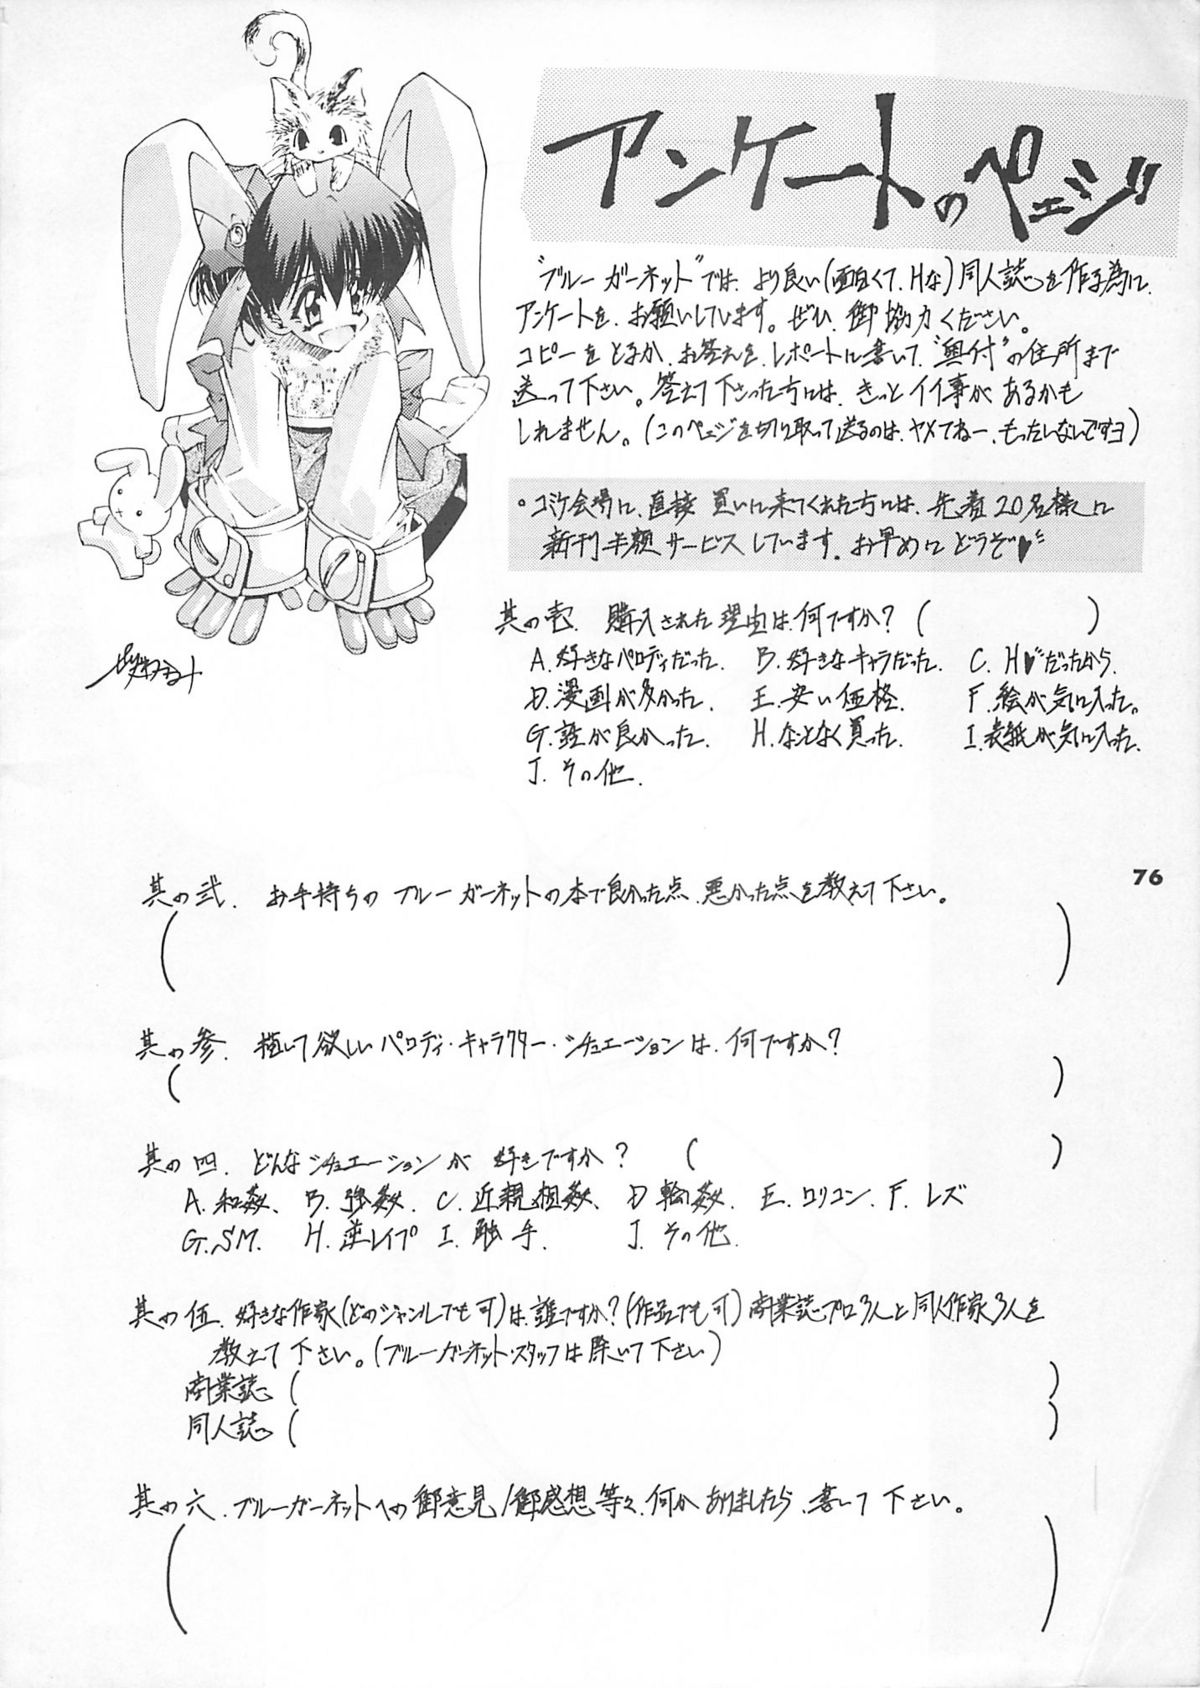 アンケートのペェジ
"ブルーガーネット"では、より良い(面白くて、Hな)同人誌を作る為に、
アンケートを、お願いしています。ぜひ、御協力ください。
コピーをとるか、お答えを、レポートに書いて、"奥付"の住所まで
送って下さい。答えて下さった方には、きっとイイ事があるかも
しれません。(このペェジを切り取って送るのは、ヤメてねー、もったいないですヨ)
・コミケ会場に、直接 買いに来てくれた方には、先着20名様に
新刊半額サービスしています。お早めに どうぞ♥
其の壱、購入された理由は、何ですか?( )
A. 好きなパロディだった、 B. 好きなキャラだった、 C. H♥だったから、
D. 漫画が多かった、 E. 安い価格、 F. 絵が気に入った。
G. 話が良かった、 H. なんとなく買った、 I. 表紙が気に入った、
J. その他、
76
其の弐、お手持ちの ブルーガーネットの本で良かった点、悪かった点を教えて下さい。
( )
其の参、描いて欲しいパロディ・キャラクター・シチュエーションは、何ですか?
( )
其の四、どんなシチュエーションが 好きですか? ( )
A. 和姦、 B. 強姦、 C. 近親相姦、 D. 輪姦、 E. ロリコン、 F. レズ
G. SM、 H. 逆レイプ I. 触手、 J. その他、
其の伍、好きな作家(どのジャンルでも可)は、誰ですか?(作品でも可)商業誌プロ3人と同人作家3人を
教えて下さい。(ブルーガーネット・スタッフは除いて下さい)
商業誌 ( )
同人誌 ( )
其の六、ブルーガーネットへの御意見/御感想等々、何かありましたら、書いて下さい。
( )